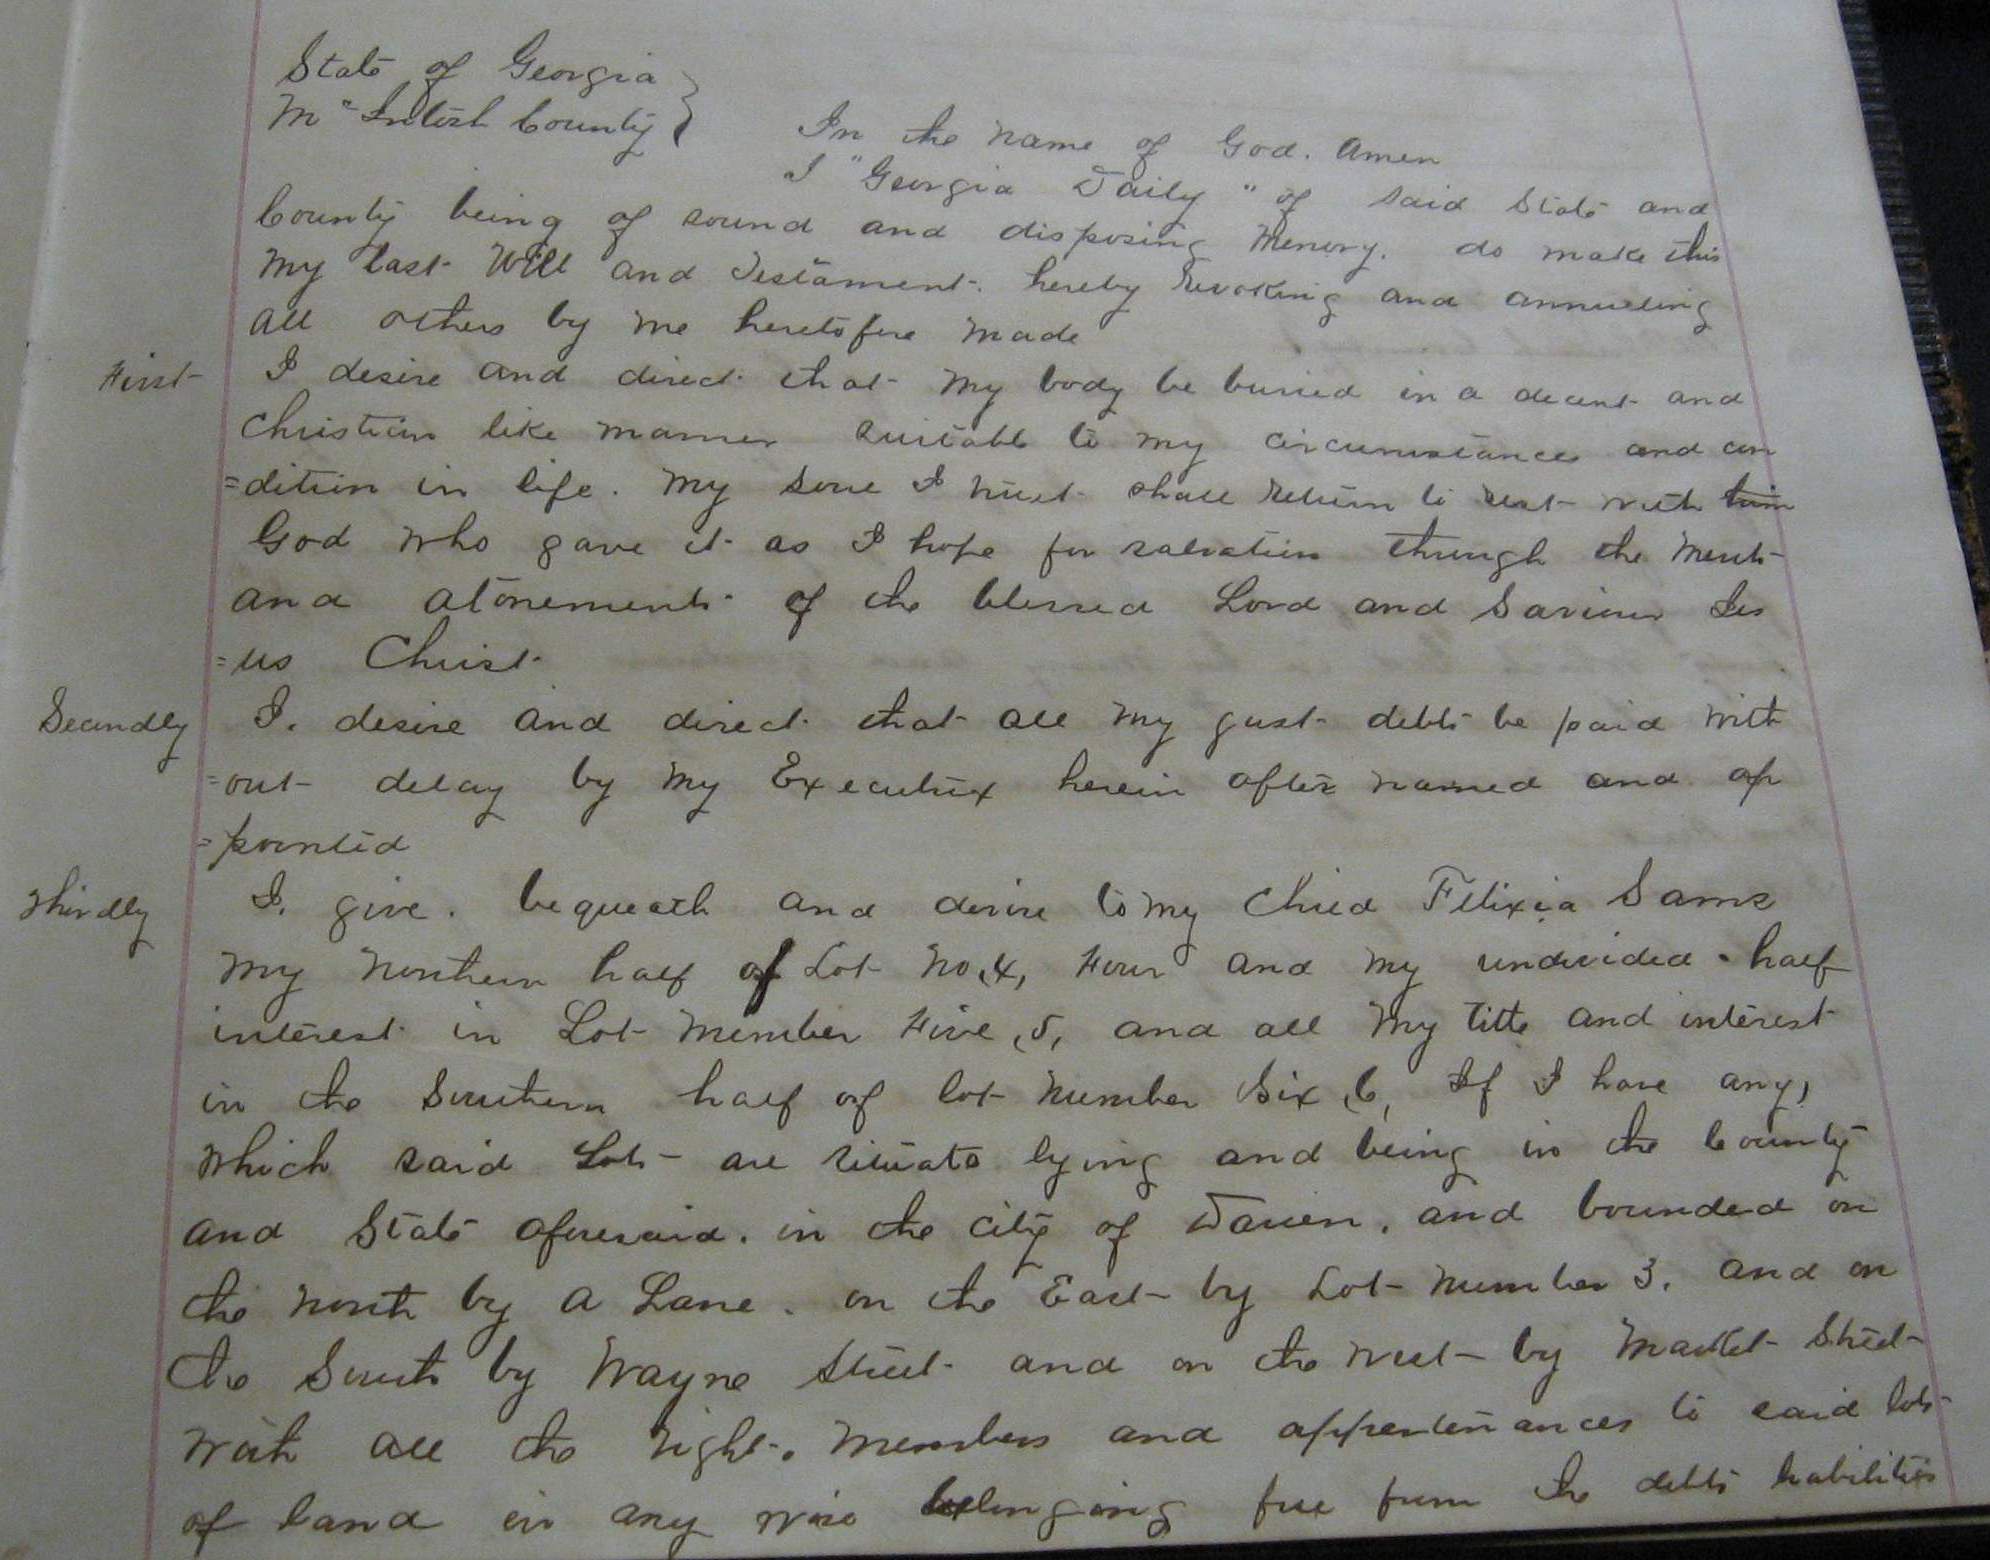 State of Georgia
McIntosh County }
In the name of God. Amen
I "Georgia Daily" of said State and
County being of sound and disposing Memory. do make this
my last Will and Testament. hereby Revoking and annulling
all others by me heretofore made
First I desire and direct that my body be buried in a decent and
Christian like manner suitable to my circumstances and con
=dition in life. My soul I trust shall return to rest with him
God who gave it as I hope for salvation through the merits
and atonements of the blessed Lord and Saviour Jes
=us Christ
Secondly I. desire and direct that all my just debts be paid with
=out delay by my Executrix herein after named and ap
=pointed
Thirdly I. give. bequeath and devise to my Child Felixia Sams
my northern half of Lot No. 4, Four and my undivided half
interest in Lot Number Five, 5, and all my title and interest
in the Southern half of lot number Six, 6, If I have any,
which said Lots are situate lying and being in the County
and State aforesaid. in the city of Darien. and bounded on
the north by a Lane. on the East by Lot number 3. and on
the South by Wayne Street and on the west by Market Street
with all the right. members and appertenances to said lots
of land in any wise belonging free from the debts liabilities